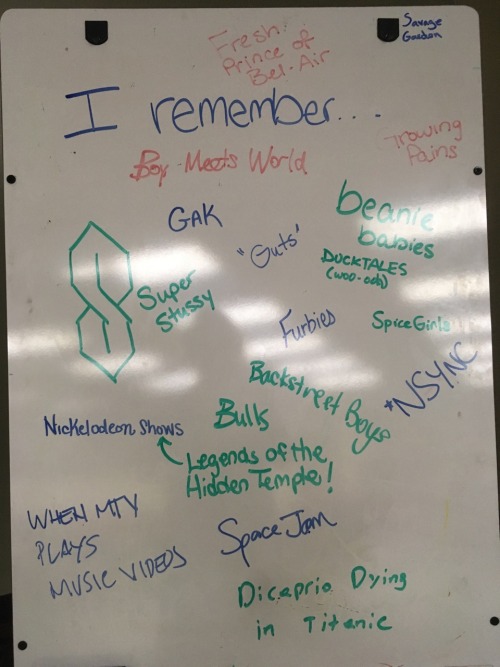 Savage
Garden
Fresh
Prince of
Bel-Air
I remember...
Growing
Pains
Boy Meets World
GAK
beanie
babies
"Guts"
DUCKTALES
(woo-ooh)
Super
Stussy
Furbies
Spice Girls
*NSYNC
Backstreet Boys
Nickelodeon Shows
Bulls
Legends of the
Hidden Temple!
WHEN MTV
PLAYS
MUSIC VIDEOS
Space Jam
Dicaprio Dying
in Titanic